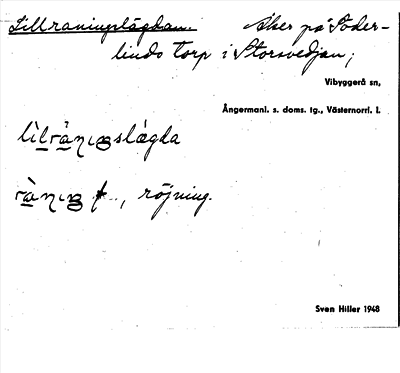 Lillraningslägdan. Åker på Söder-
linds Torp i Storsvedjan;
Vibyggerå sn,
Ångermanl. s. doms. tg., Västernorrl. l.
lìlrȧ̀nıŋslægda
rȧ̀nıŋ f., röjning.
Sven Hiller 1948